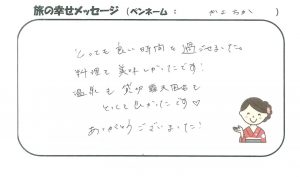 旅の幸せメッセージ （ペンネーム： ）
とっても良い時間を過ごせました。
料理も美味しかったです！
温泉も貸切露天風呂で
とっても良かったです♡
ありがとうございました！